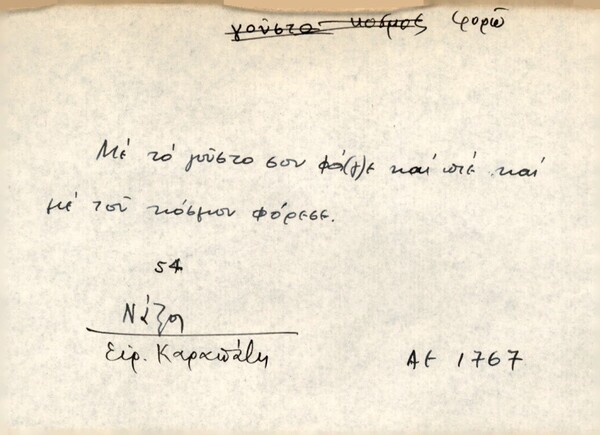 γοῦστο κόσμος φορῶ
Μέ τό γοῦστο σου φά(γ)ε καί πιέ καί
μέ τοῦ κόσμου φόρεσε.
54
Νάξος
Εἰρ. Καραπάτη
ΑΕ 1767